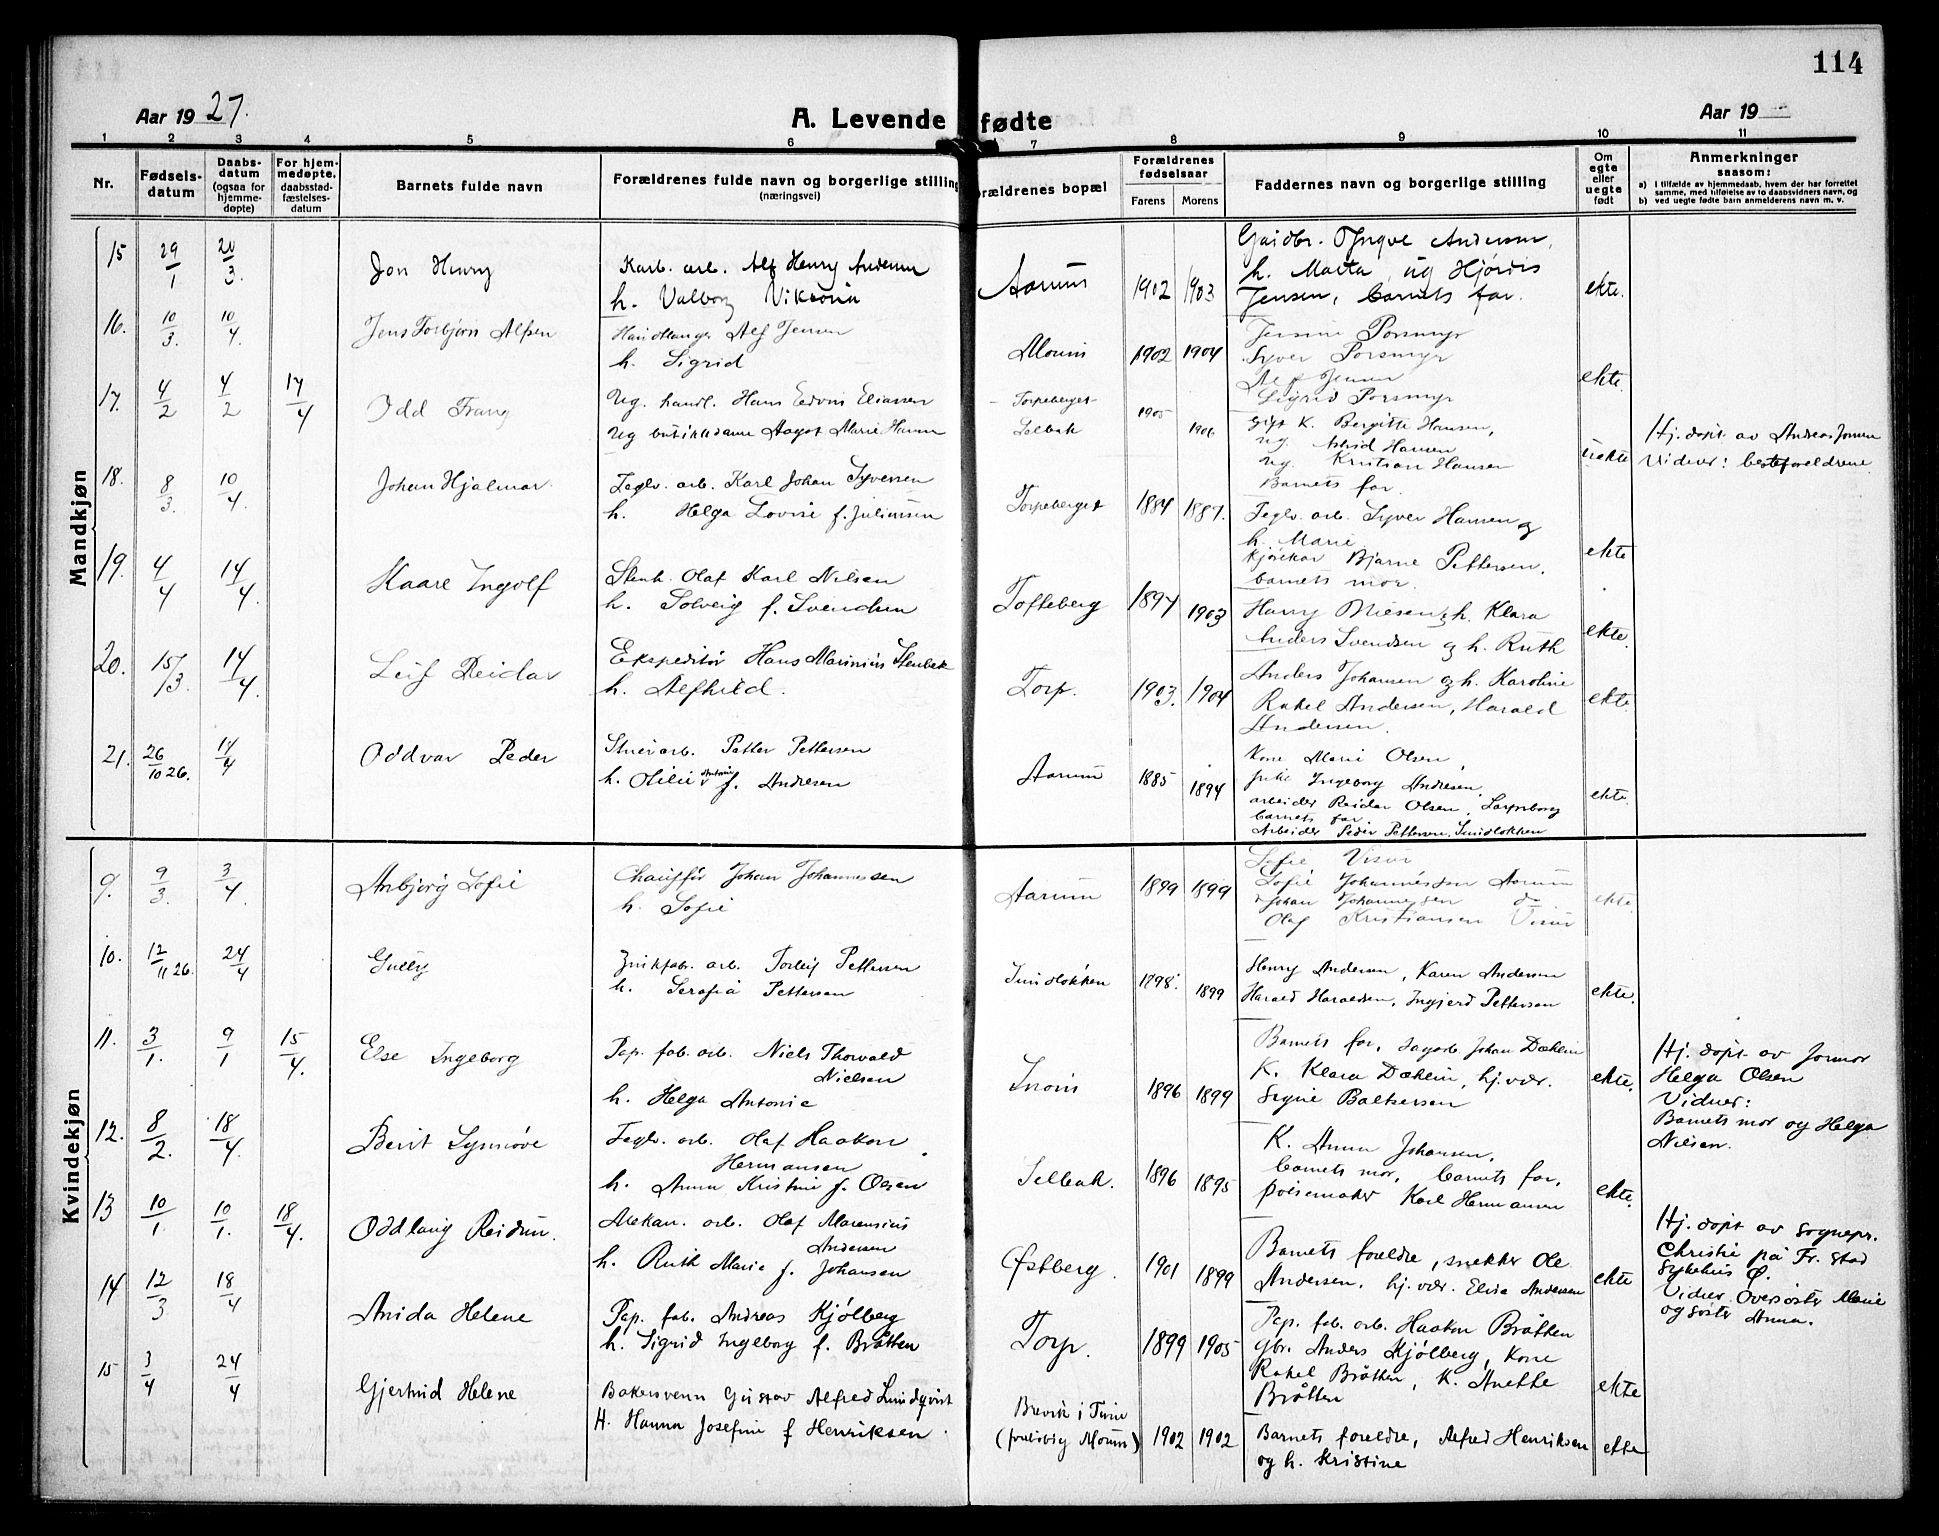 114
Aar 1927.
A. Levende fødte
Aar 19
1 2 3 4 5 6 7 8 9 10 11
Nr.
Fødsels-
datum
Daabs-
datum
(ogsaa for
hjemme-
døpte)
For hjem-
medøpte,
daabsstad-
fæstelses-
datum
Barnets fulde navn
Forældrenes fulde navn og borgerlige stilling
(næringsvei)
orældrenes bopæl
Forældrenes
fødselsaar
Farens Morens
Faddernes navn og borgerlige stilling
Om
egte
eller
uegte
født
Anmerkninger
saasom:
a) I tilfælde av hjemmedaab, hvem der har forrettet
samme, med tilføielse av to daabsvidners navn, og
b) ved uegte fødte barn anmelderens navn m. v.
Mandkjøn
15 29/1 20/3. Jon Henry
Karb. arb. Alf Henry Andersen
h. Valborg Viktoria
Aarum 1902 1903
Yngve Andersen,
h. Marta, og Hjørdis
Jensen, barnets far.
ekte.
16. 10/3. 10/4. Jens Torbjørn Alfsen
Alf Jensen
h. Sigrid
Moum 1902 1904
Porsmyr
Syver Porsmyr
Alf Jensen
Sigrid Porsmyr
ekte.
17. 4/2 4/2 17/4 Odd Franz
Ug. handl. Hans Edvin Eliassen
Ug butikkdame Aagot Marie Hansen
Torpeberget
Selbak
1905
Gift K. Bergitte Hansen,
ug. Astrid Hansen
ug. Kristian Hansen
Barnets far.
uekte
Hj. døpt av Andreas Jensen
Vidner: besteforeldrene
18. 8/3. 10/4. Johan Hjalmar.
Teglv. arb. Karl Johan Syversen
h. Helga Lovise f. Juliussen
Torpeberget 1884 1887.
Teglv. arb. Syver Hansen og
h. Marie
Bjarne Pettersen,
barnets mor.
ekte
19. 4/4 14/4. Kaare Ingolf
Stenh. Olaf Karl Nilsen
h. Solveig f. Svendsen
Tofteberg 1897 1903
Harry Nilsen, h. Klara
Anders Svendsen og h. Ruth
ekte.
20. 15/3. 14/4. Leif Reidar
Ekspeditør Hans Marinius Stenbek
h. Alfhild.
Torp. 1903. 1904
Anders Johansen og h. Karoline
Rakel Andersen, Harald
Andersen.
ekte.
21. 26/10 26. 17/4 Oddvar Peder
Petter Pettersen
h. Otilie Antonie f. Andresen
Aarum 1885 1894
Kone Marie Olsen,
Ingeborg Andresen,
arbeider Reidar Olsen, Sarpsborg
barnets far
Arbeider Peder Pettersen, Smidløkken
ekte.
Kvindekjøn
9. 9/3. 3/4. Anbjørg Sofie
Chauffør Johan Johannessen
h. Sofie
Aarum 1899 1899
Sofie Visur
Sofie Johannessen Aarum
Johan Johannessen do
Olaf Kristiansen Visur
ekte.
10. 12/11 26. 24/4 Gully
Zinkfab. arb. Torleif Pettersen
h. Serafia Pettersen
Smidløkken 1898. 1899
Henry Andersen, Karen Andersen
Harald Haraldsen, Ingjerd Pettersen
ekte.
11. 3/1. 9/1 15/4. Else Ingeborg
Pap. fab. arb. Niels Thorvald
Nielsen
h. Helga Antonie
1896 1899
Barnets far, sagarb. Johan Dæhlin
K. Klara Dæhlin, hj. vær.
Signe Baltzersen
ekte.
Hj. døpt av jormor
Helga Olsen
Vidner:
Barnets mor og Helga
Nilsen.
12. 8/2. 18/4. Berit Synnøve
Teglv. arb. Olaf Haakon
Hermansen
h. Anna Kristine f. Olsen
Selbak. 1896 1895
K. Anna Johansen,
barnets mor, barnets far,
pølsemaker Karl Hermansen
ekte.
13 10/1. 10/1. 18/4. Oddlaug Reidun.
Mekan. arb. Olaf Marensius
Andersen
h. Ruth Marie f. Johansen
Østberg. 1901 1899
Barnets foreldre, snekker Ole
Andersen, hj. vær. Elise Andersen
ekte
Hj. døpt av sognepr.
Christie på Fr.stad
Sykehus Ø.
Vidner Oversøster Marie
og søster Anna.
14 12/3 18/4 Anida Helene
Pap. fab. Andreas Kjølberg
h. Sigrid Ingeborg f. Bråtten
Torp. 1899 1905
Pap. fab. arb. Haakon Bråtten
gbr. Anders Kjølberg, Kone
Rakel Bråtten, K. Anette
Bråtten
ekte
15 3/4 24/4 Gjertrud Helene
Bakersvenn Gustav Alfred Lundqvist
H. Hanna Josefine f Henriksen.
Brevik i Tune
(forelobig Moum) 1902 1902
Barnets foreldre, Alfred Henriksen
og h. Kristine
ekte